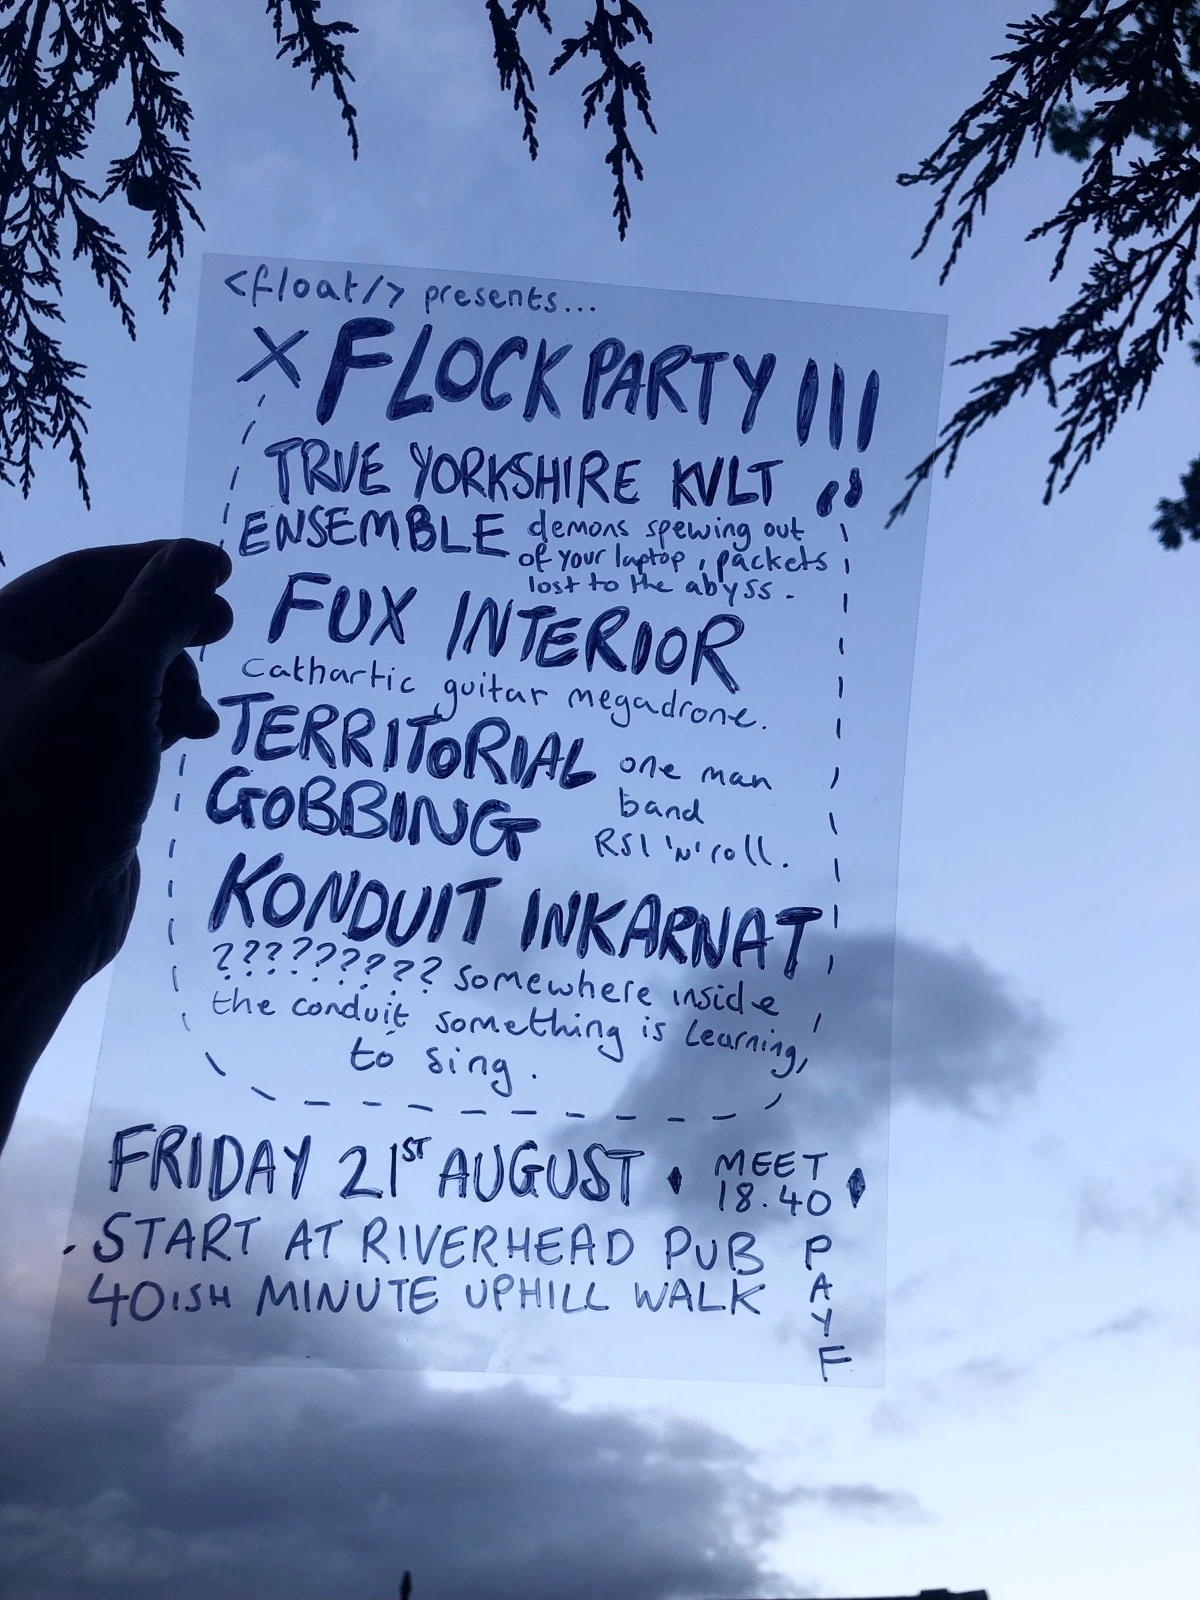 <float/> presents...
X FLOCK PARTY III
TRVE YORKSHIRE KVLT
ENSEMBLE demons spewing out
of your laptop, packets
lost to the abyss.
FUX INTERIOR
cathartic guitar megadrone.
TERRITORIAL one man
GOBBING band
RSI 'N' roll.
KONDUIT INKARNAT
????????? somewhere inside
the conduit something is learning,
to sing.
FRIDAY 21ST AUGUST MEET
18.40
START AT RIVERHEAD PUB
40ISH MINUTE UPHILL WALK
PAYF